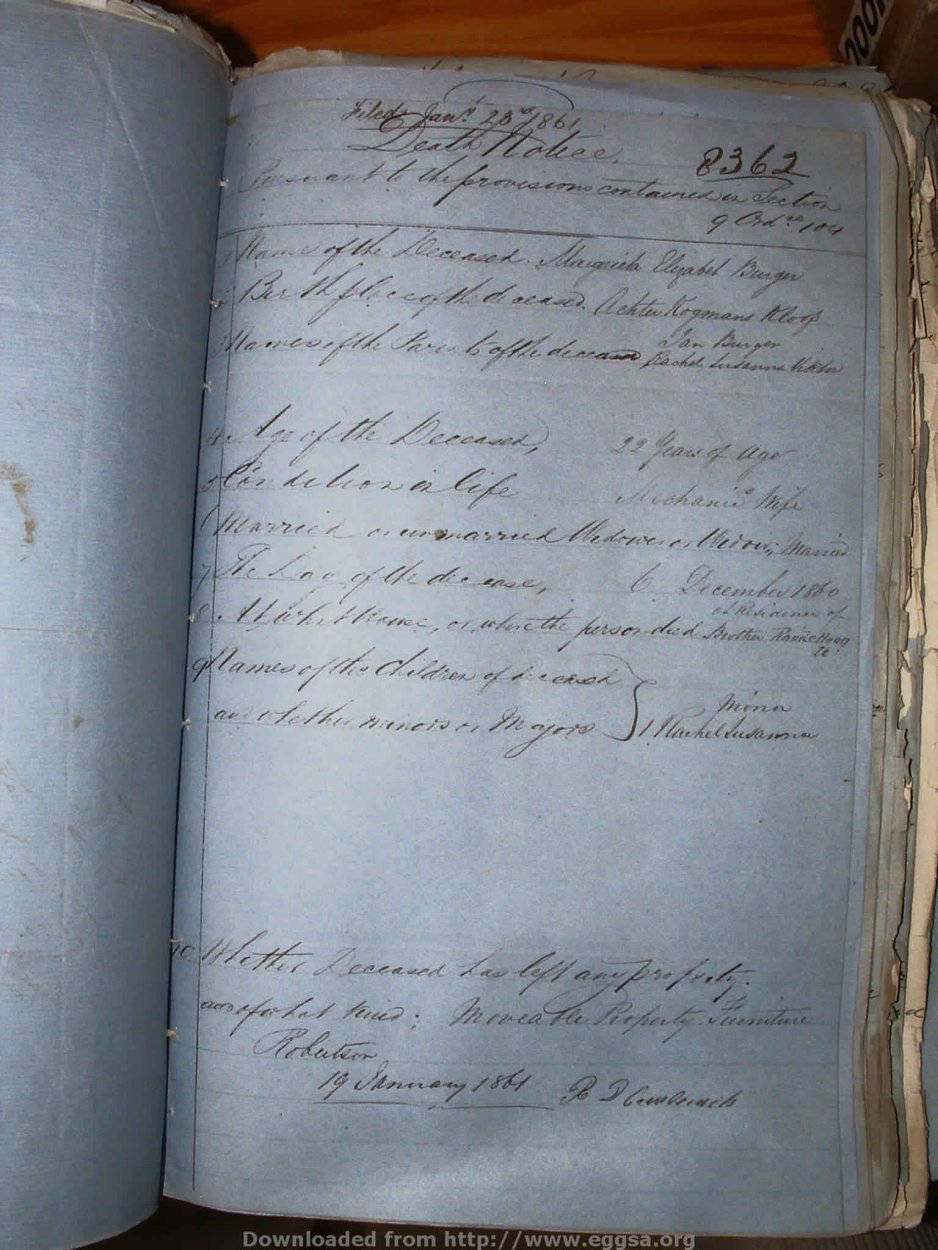 Filed Jany. 23rd 1861
Death Notice.
8362
Pursuant to the provisions contained in Section
9 Ordce 104
1 Name of the Deceased. Margrieta Elizabet Burger
2 Birth place of the deceased. Achter Kogmans Kloof
Jan Burger
3 Names of the Parents of the deceased Rachel Susanna
4 Age of the Deceased, 22 Years of Age
5 Condition in life Mechanics Wife
6 Married or unmarried Widower or Widow; Married
7 The Day of the decease, 6 December 1860
at Residence of
8 At what House, or where the person died Brother
9 Names of the Children of deceased
Minor
and whether minors or Majors } 1. Rachel Susanna
10 Whether Deceased has left any property.
and of what kind; Moveable Property. Furniture
Robertson
19 January 1861
Downloaded from http://www.eggsa.org